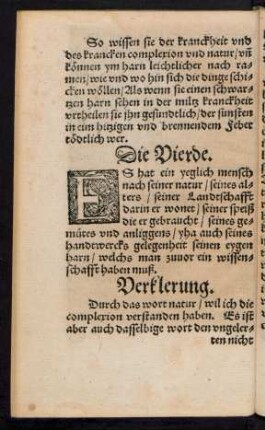 So wissen sie der kranckheit vnd
des krancken complexion vnd natur/ vñ
können ym harn leichtlicher nach ra-
men/ wie vnd wo hin sich die dinge schi-
cken wöllen/ Als wenn sie einen schwar-
tzen harn sehen in der miltz kranckheit
vrtheilen sie jhn gesundtlich/ der sunsten
in eim hitzigen vnd brennendem Feber
tödtlich wer.
Die Vierde.
ES hat ein yeglich mensch
nach seiner natur/ seines al-
ters/ seiner Landtschafft
darin er wonet/ seiner speiß
die er gebraucht/ seines ge-
mütes vnd anliggens/ yha auch seines
handtwercks gelegenheit seinen eygen
harn/ welchs man zuuor ein wissen-
schafft haben muß.
Verklerung.
Durch das wort natur/ wil ich die
complexion verstanden haben. Es ist
aber auch dasselbige wort den vngeler-
ten nicht